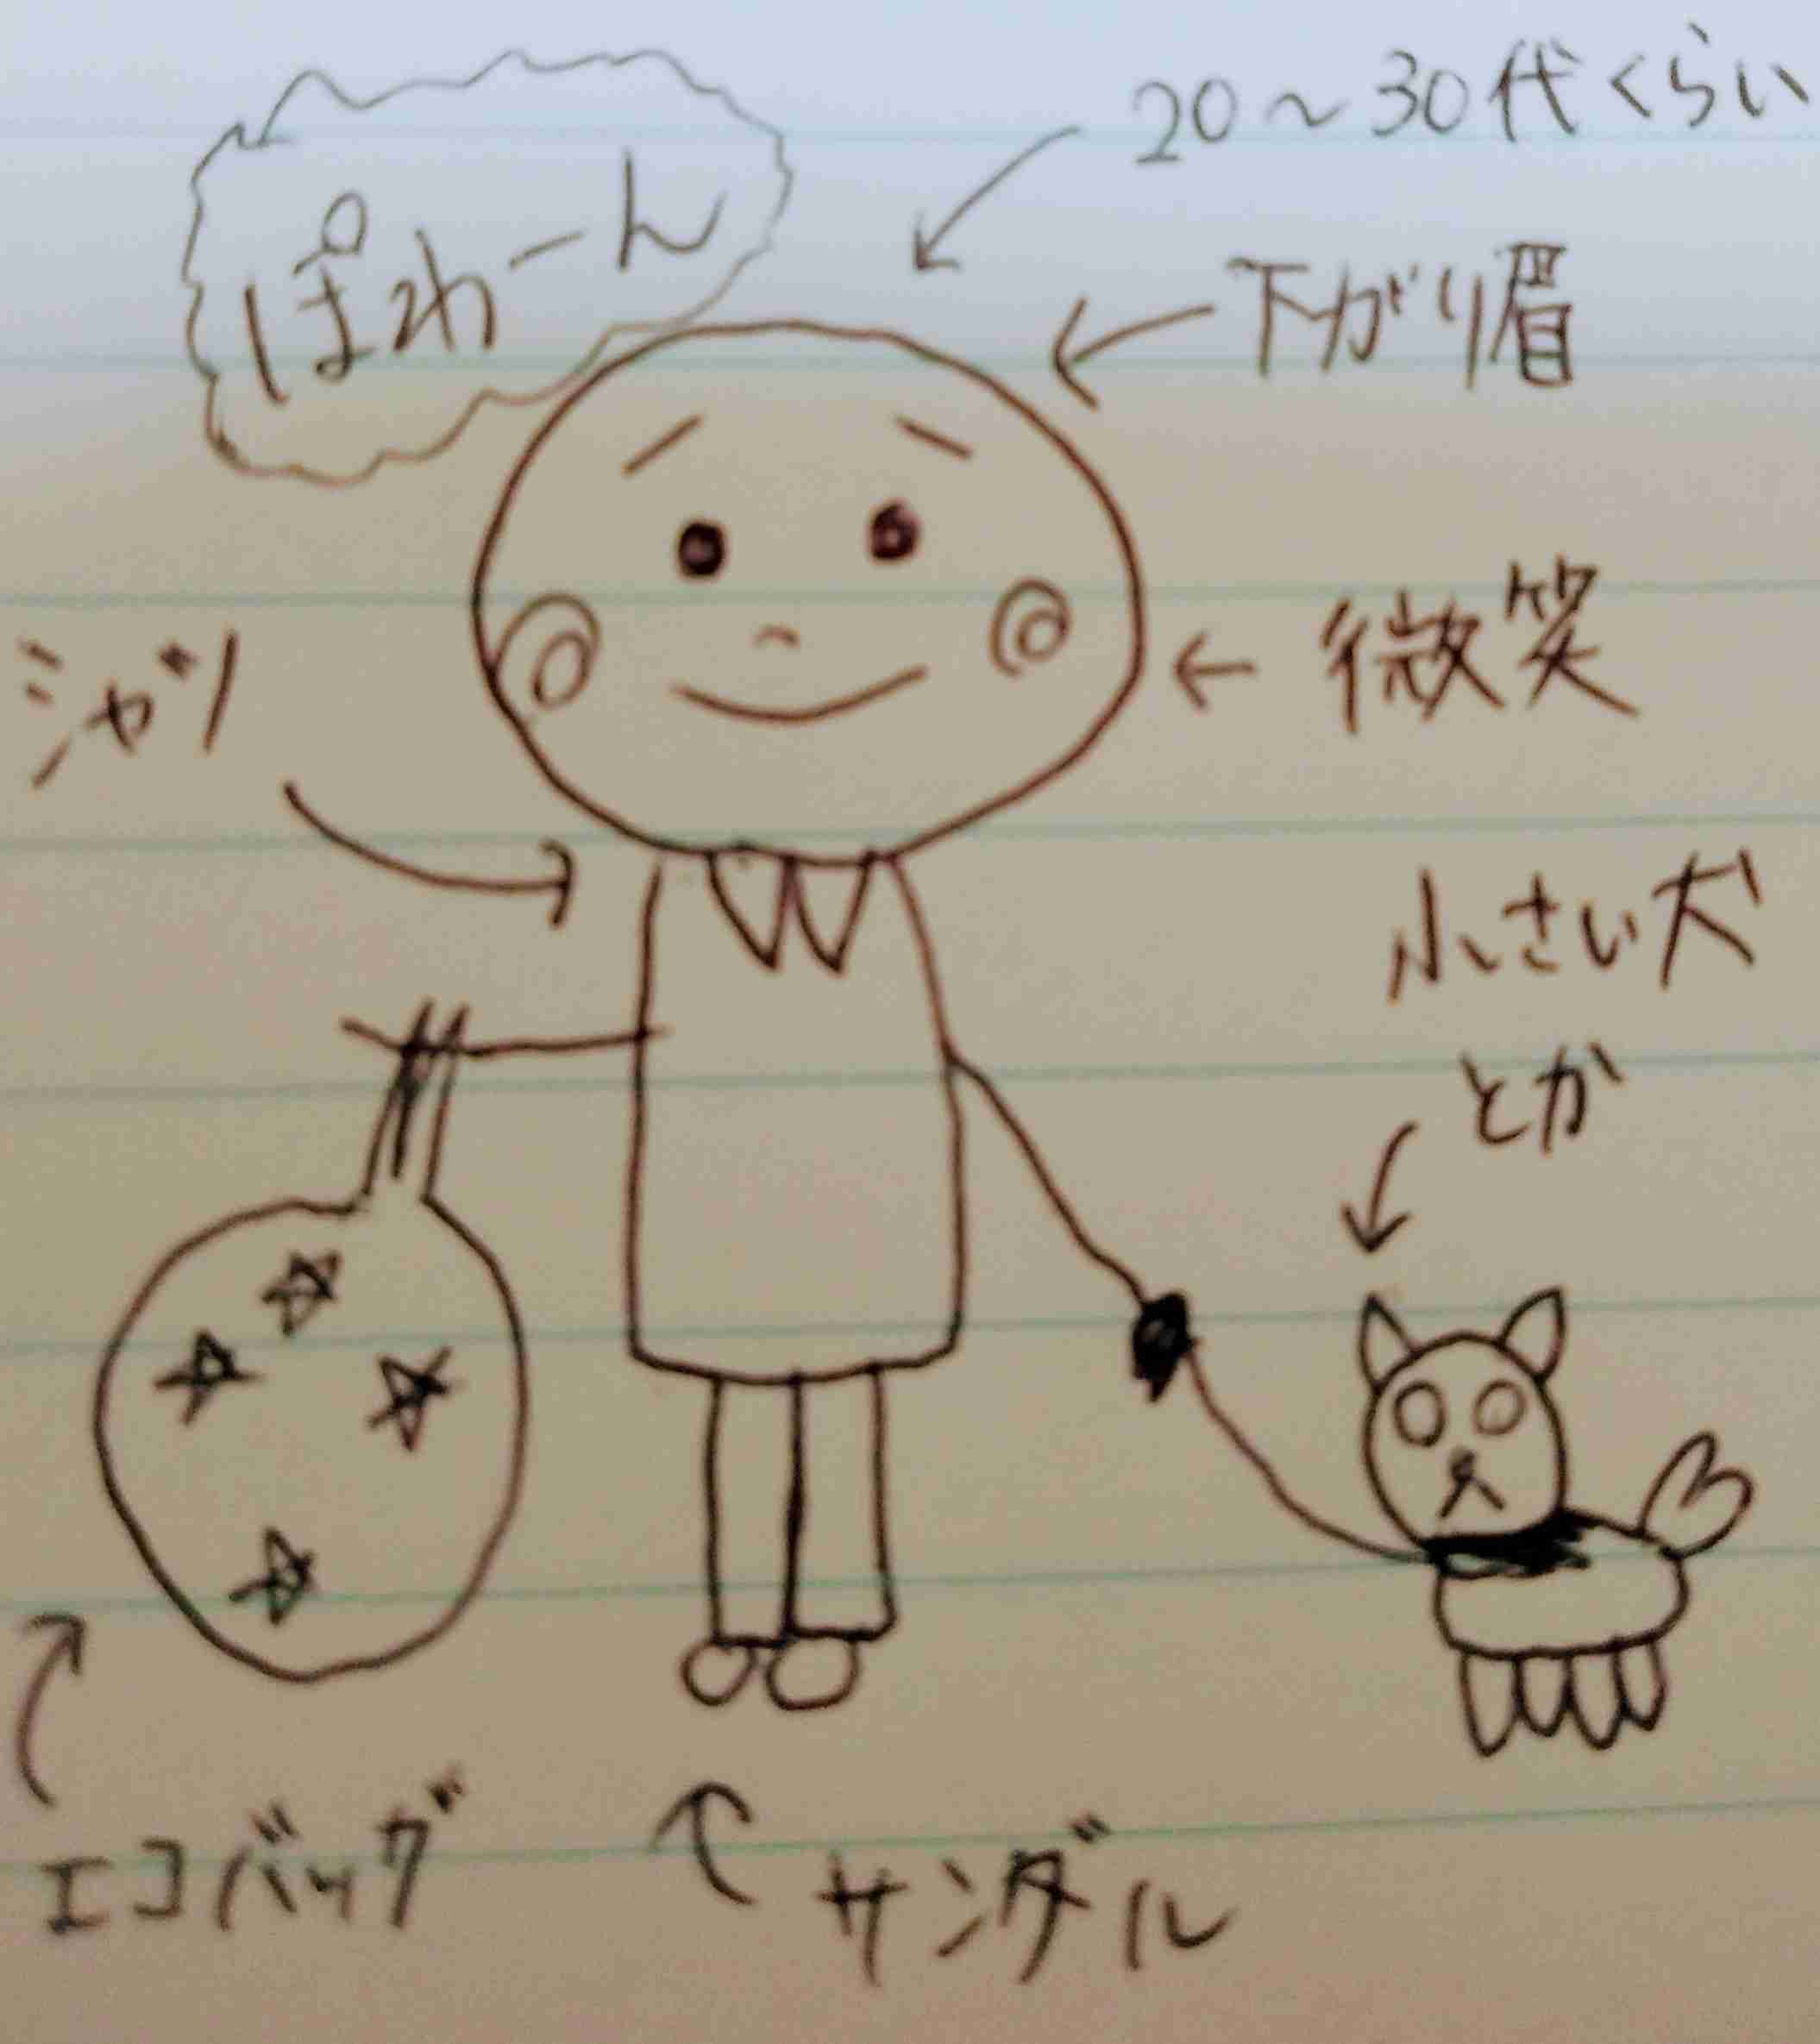 20〜30代くらい
ぽわーん
下がり眉
微笑
シャツ
小さい犬
とか
エコバッグ
サンダル